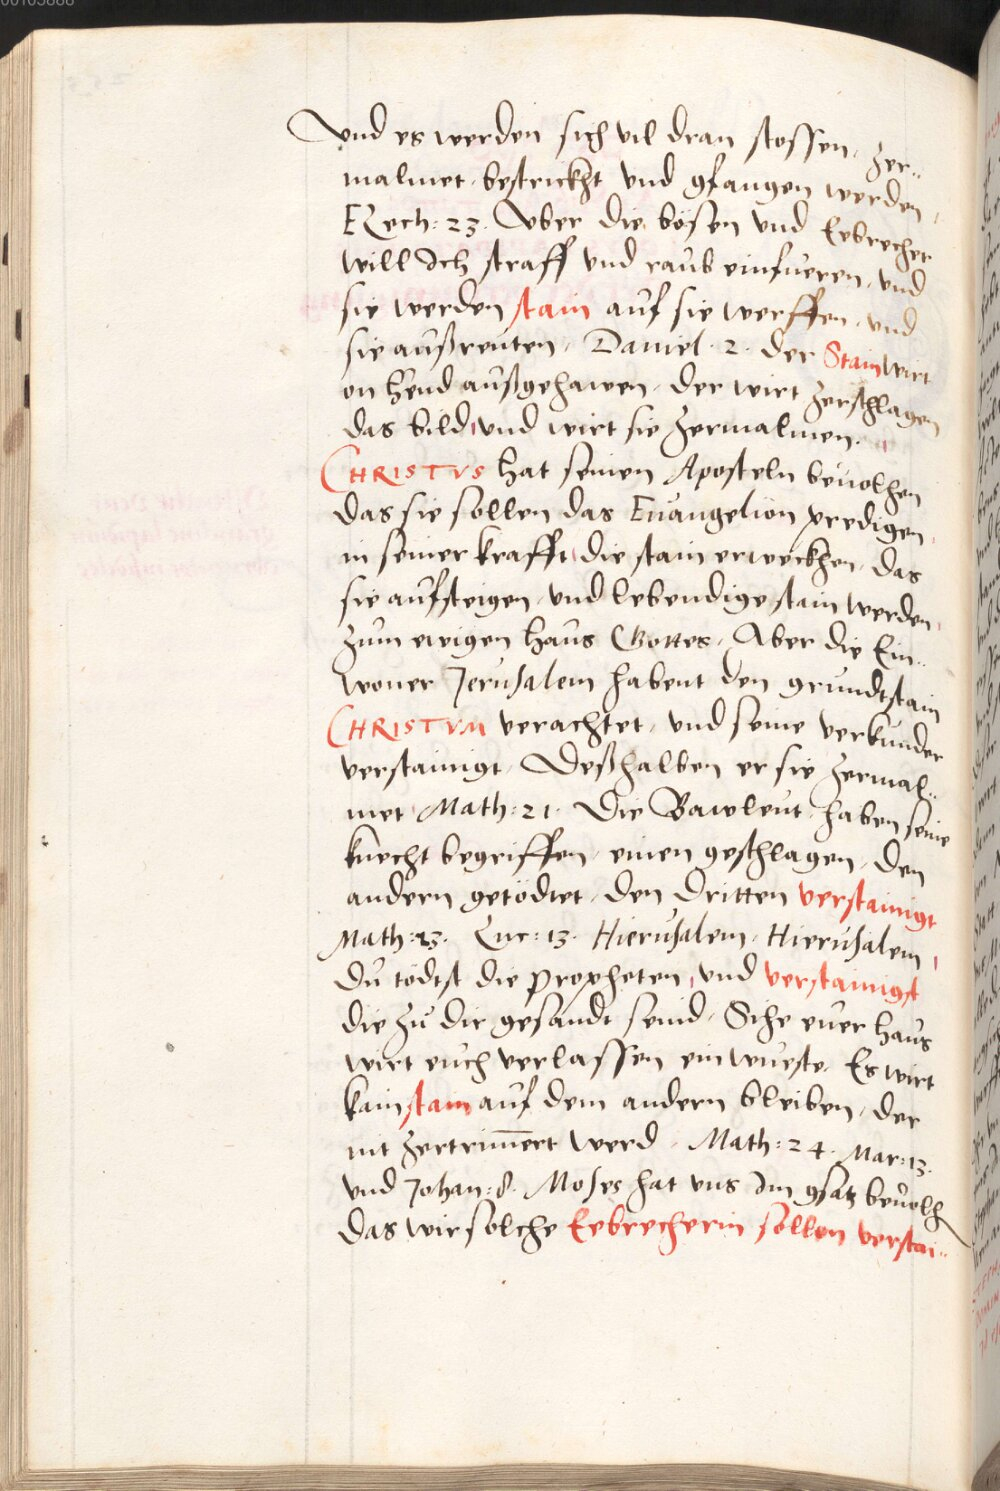 Vnd es werden sich vil dran stossen, zer„
malmet, bestrickht vnd gfangen werden,
EZech: 23. Vber die bösen vnd Eebrecher
will Ich straff vnd raub einfueren, vnd
sie werden stain auf sie werffen, vnd
sie außreuten, Daniel. 2. der Stain wirt
on hend außgehawen, der wirt zerschlagen
das bild, vnd wirt sie zermalmen.
CHRISTVS hat seinen Aposteln beuolhen
das sie sollen das Euangelion predigen,
in seiner krafft, die stain erweckhen, das
sie aufsteigen, vnd lebendige stain werden,
zum ewigen haus Gottes, Aber die Ein„
woner Jerusalem habent den grundtstain
CHRISTVM verachtet, vnd seine verkunder
verstainigt, Deßhalben er sie zermal„
met, Math: 21. Die Bawleut, haben seine
knecht begriffen, einen geschlagen, den
andern getödtet, den dritten verstainigt
Math: 23. Luc: 13. Hierusalem, Hierusalem,
du tödtst die Propheten, vnd verstainigst
die zu dir gesandt seind, Sihe euer haus
wirt euch verlassen ein wueste. Es wirt
kain stain auf dem andern bleiben, der
nit zertrim̄ert werd, Math: 24. Mar: 13.
vnd Johan: 8. Moses hat vns im gsatz beuolh
das wir solche Eebrecherin sollen verstai„